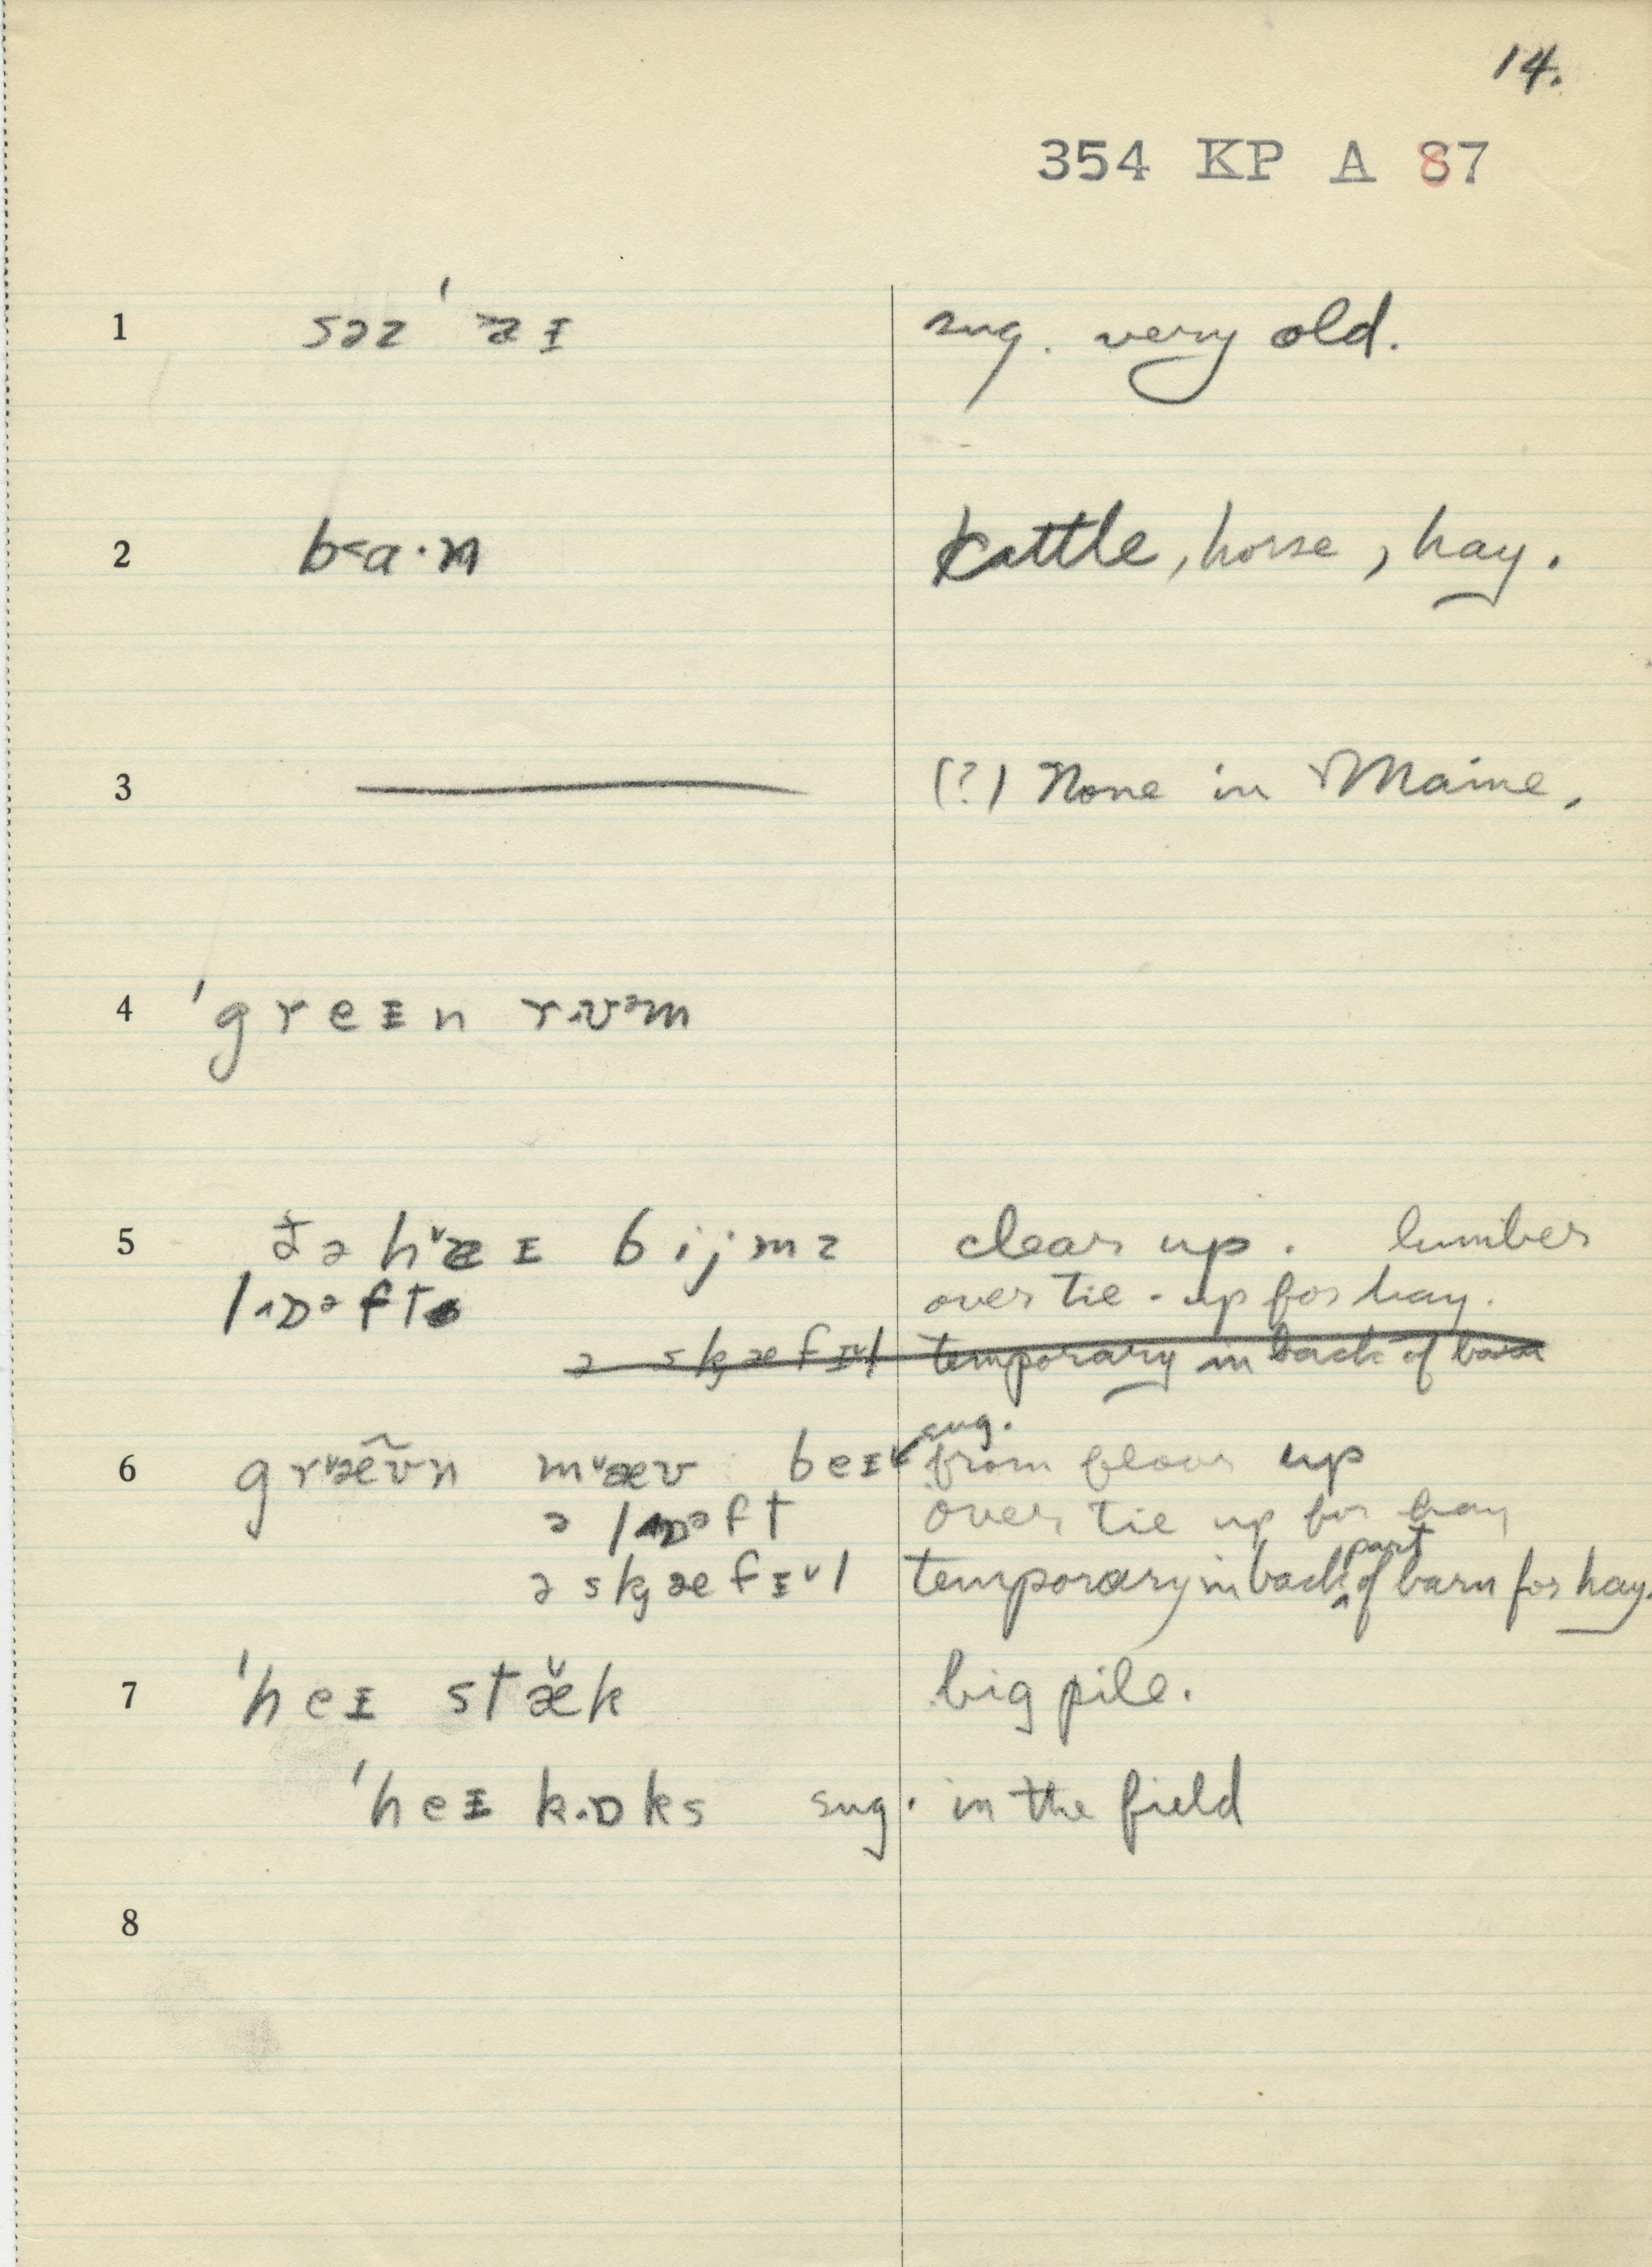 14.
354 KP A 87
1 səz ˈaɪ sug. very old.
2 b<a·n Cattle, horse, hay.
3 (?) None in Maine.
4 ˈgreɪn rᴧʊᵊm
5 ðə hæɪ bijmz clear up. lumber
lɒᵊft over tie-up for hay.
ə skæfɪl temporary in back of barn
sug.
6 græ̃ʊn mæʊ beɪ from floor up
ə lɒᵊft over tie up for hay
ə skæfɪᵛl temporary in back part of barn for hay.
7 ˈheɪ stæ̌k big pile.
ˈheɪ kɒks sug. in the field
8